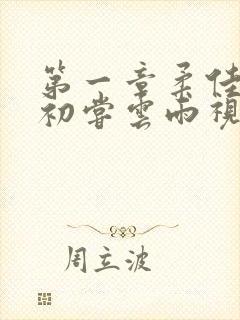 第一章柔佳
初尝雲雨視
周立波